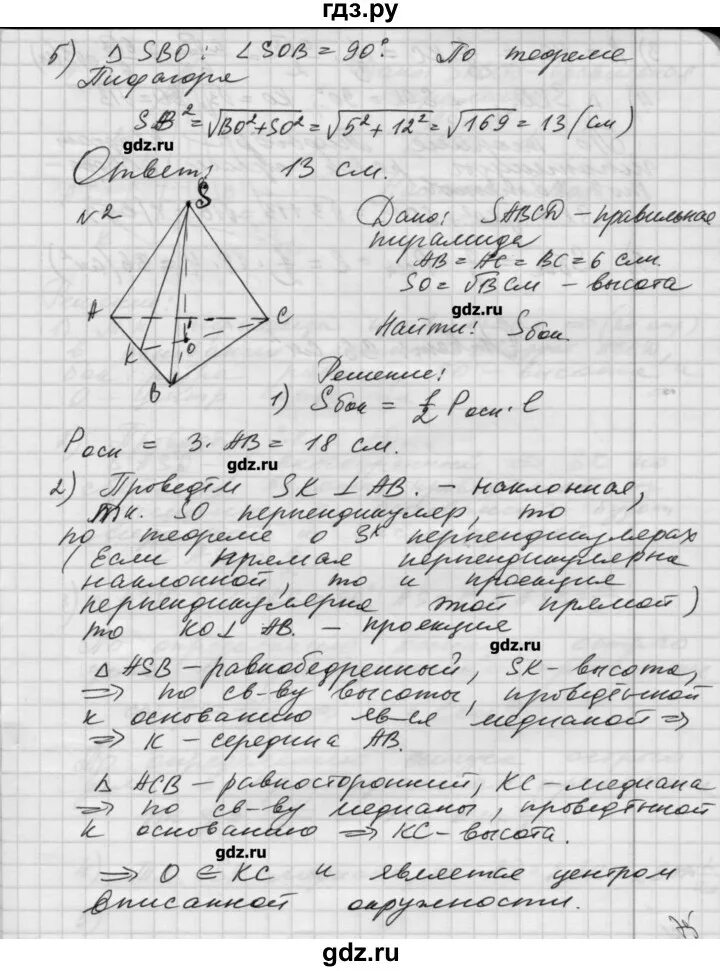 гдз.ру
5) Δ SBO: ∠SOB = 90°. По теореме
Пифагора
SB² = √BO²+SO² = √5²+12² = √169 = 13 (см)
gdz.ru
Ответ: 13 см.
№2
S
A
C
K
O
B
Дано: SABCD – правильная
пирамида
AB = AC = BC = 6 см.
SO = √13 см – высота
gdz.ru
Найти: Sбок.
Решение:
1) Sбок = 1/2 Pосн · l
Pосн = 3 · AB = 18 см.
gdz.ru
2) Проведём SK ⊥ AB. – наклонная,
т.к. SO перпендикуляр, то
по теореме о 3х перпендикулярах
(Если прямая перпендикулярна
наклонной, то и проекция
перпендикулярна этой прямой)
то KO ⊥ AB. – проекция
Δ ASB – равнобедренный, SK – высота,
⇒ по св-ву высоты, проведённой
к основанию яв-ся медианой ⇒
⇒ K – середина AB.
gdz.ru
Δ ACB – равносторонний, KC – медиана
⇒ по св-ву медианы, проведённой
к основанию ⇒ KC – высота.
gdz.ru
⇒ O ∈ KC и является центром
вписанной окружности.
gdz.ru